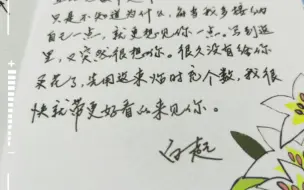 只是不知道为什么，每当我多接纳
自己一点，就更想见你一点。写到这
里，又突然很想你。很久没有给你
买花了，先用这来临时充个数，我很
快就带更好看的来见你。
白起